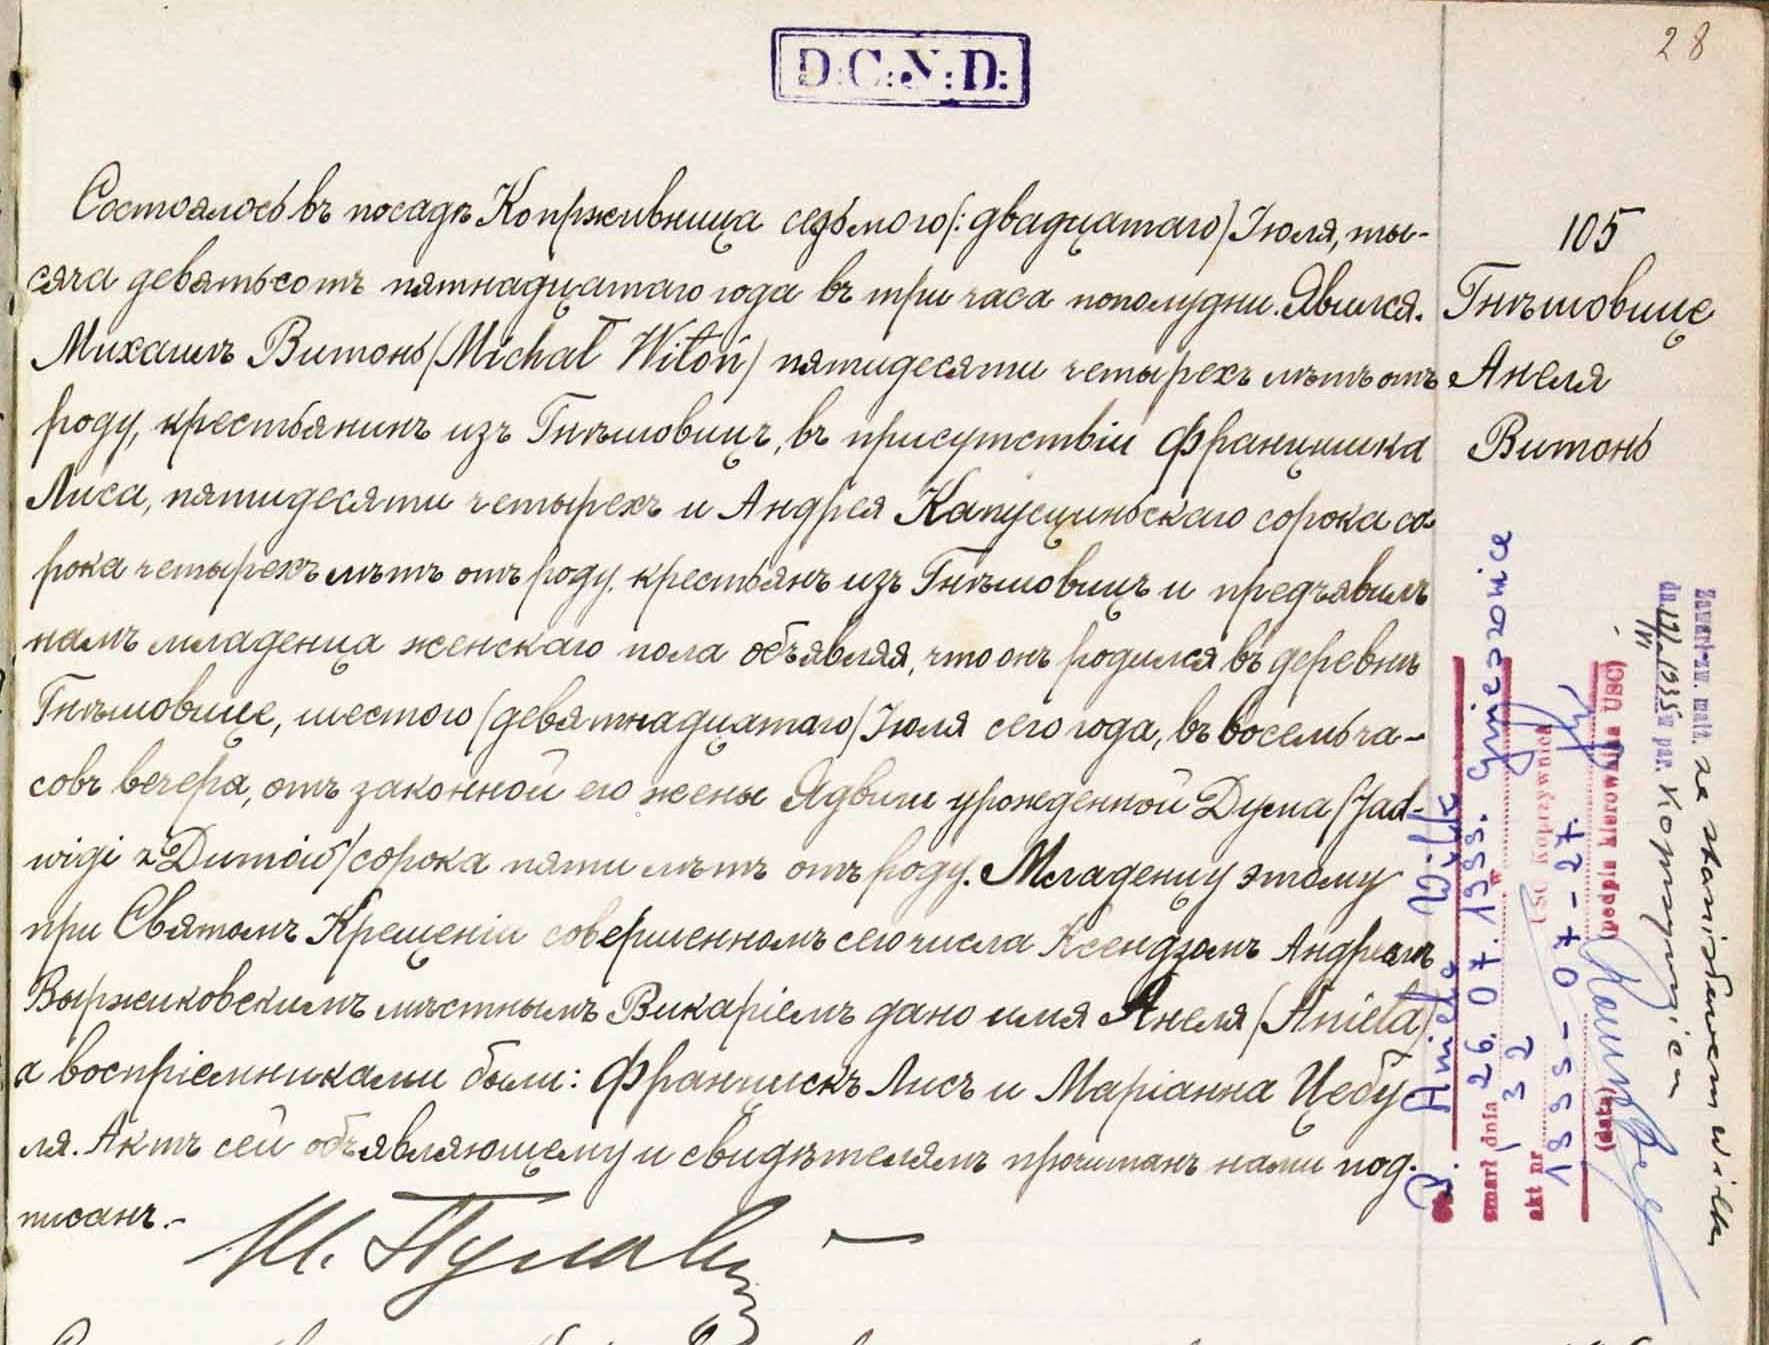 28
D:C:N:D:
Состоялось въ посадѣ Копрживница седьмого/:двадцатаго/Іюля, ты-
сяча девятьсотъ пятнадцатаго года въ три часа пополудни. Явился.
Михаилъ Витонь/Michał Witoń/ пятидесяти четырехъ лѣтъ отъ
роду, крестьянинъ изъ Гнѣшовицъ, въ присутствіи Францишка
Лиса, пятидесяти четырехъ и Андрея Капусциньскаго сорока со-
рока четырехъ лѣтъ отъ роду, крестьянъ изъ Гнѣшовицъ и предъявилъ
намъ младенца женскаго пола объявляя, что онъ родился въ деревнѣ
Гнѣшовице, шестого/девятнадцатаго/Іюля сего года, въ восемь ча-
совъ вечера, отъ законной его жены Ядвиги урожденной Дума/Jad-
wigi z Dumów/сорока пяти лѣтъ отъ роду. Младенцу этому
при Святомъ Крещеніи совершенномъ сего числа Ксендзомъ Андреемъ
Выржиковскимъ мѣстнымъ Викаріемъ дано имя Анеля/Aniela/
а воспріемниками были: Францискъ Лисъ и Маріанна Цебу-
ля. Актъ сей объявляющему и свидѣтелямъ прочитанъ нами под-
писанъ.-
105
Гнѣшовице
Анеля
Витонь
Aniela Wilk
zmarł dnia 26.07.1993. Gnieszowice
akt nr 132 USC Koprzywnica
1993-07-27.
(data) (podpis kierownika USC)
Zawarł zw. małż. ze Stanisławem Wilk
dn. 1935 w par. Koprzywnica